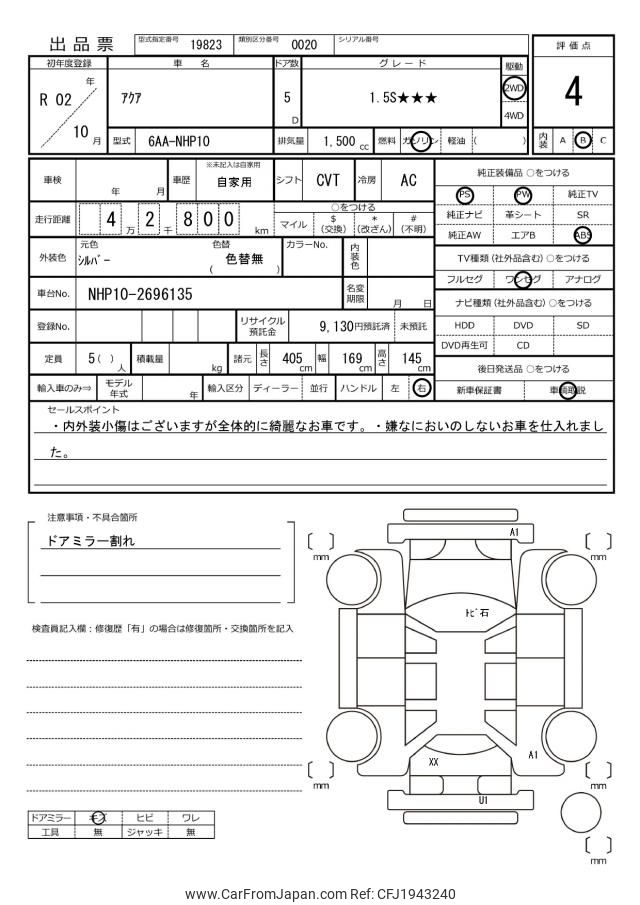 出品票 型式指定番号 19823 類別区分番号 0020 シリアル番号
評価点
4
内装 A B C
初年度登録 車名 ドア数 グレード 駆動
R 02 年 10 月
アクア
5 D
1.5S★★★
2WD
4WD
型式 6AA-NHP10 排気量 1,500 cc 燃料 ガソリン 軽油 ( )
車検 年 月 車歴 ※未記入は自家用 自家用 シフト CVT 冷房 AC
走行距離 4 万 2 千 8 0 0 km
○をつける
マイル $ (交換) * (改ざん) # (不明)
外装色 元色 シルバー 色替 ( 色替無 ) カラーNo. 内装色
車台No. NHP10-2696135 名変期限 月 日
登録No. リサイクル預託金 9,130円預託済 未預託
定員 5 ( ) 人 積載量 kg 諸元 長さ 405 cm 幅 169 cm 高さ 145 cm
輸入車のみ⇒ モデル年式 年 輸入区分 ディーラー 並行 ハンドル 左 右
純正装備品 ○をつける
PS PW 純正TV
純正ナビ 革シート SR
純正AW エアB ABS
TV種類 (社外品含む) ○をつける
フルセグ ワンセグ アナログ
ナビ種類 (社外品含む) ○をつける
HDD DVD SD
DVD再生可 CD
後日発送品 ○をつける
新車保証書 車輌取説
セールスポイント
・内外装小傷はございますが全体的に綺麗なお車です。・嫌なにおいのしないお車を仕入れまし
た。
注意事項・不具合箇所
ドアミラー割れ
検査員記入欄：修復歴「有」の場合は修復箇所・交換箇所を記入
ドアミラー キズ ヒビ ワレ
工具 無 ジャッキ 無
A1
[ ] mm
[ ] mm
トビ石
A1
XX
U1
[ ] mm
[ ] mm
[ ] mm
www.CarFromJapan.com Ref: CFJ1943240